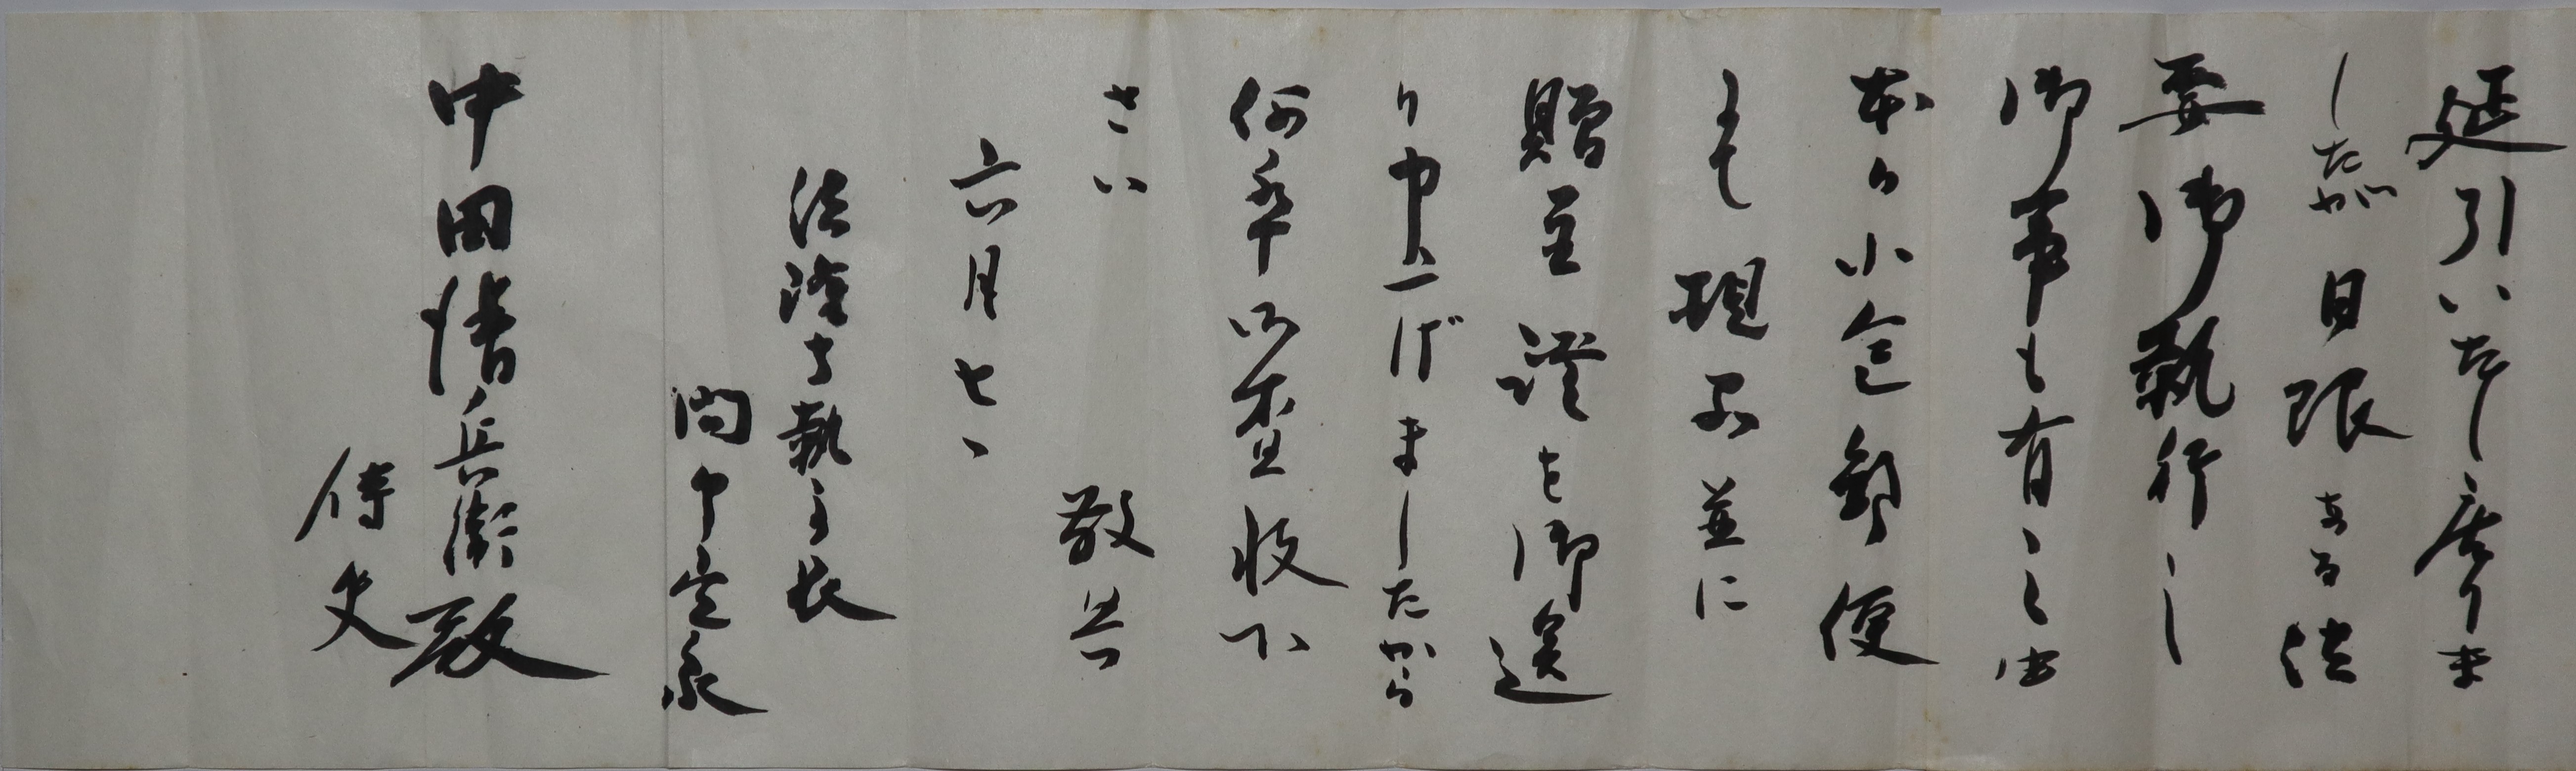 延引いたし居りま
したが 日限ある法
要御執行し
御事も有之由
本日小包郵便
にて現品並に
贈呈證を御送
り申上げましたから
何卒御査收下
さい 敬具
六月七日
法隆寺執事長
間中定泉
中田清兵衛殿
侍史